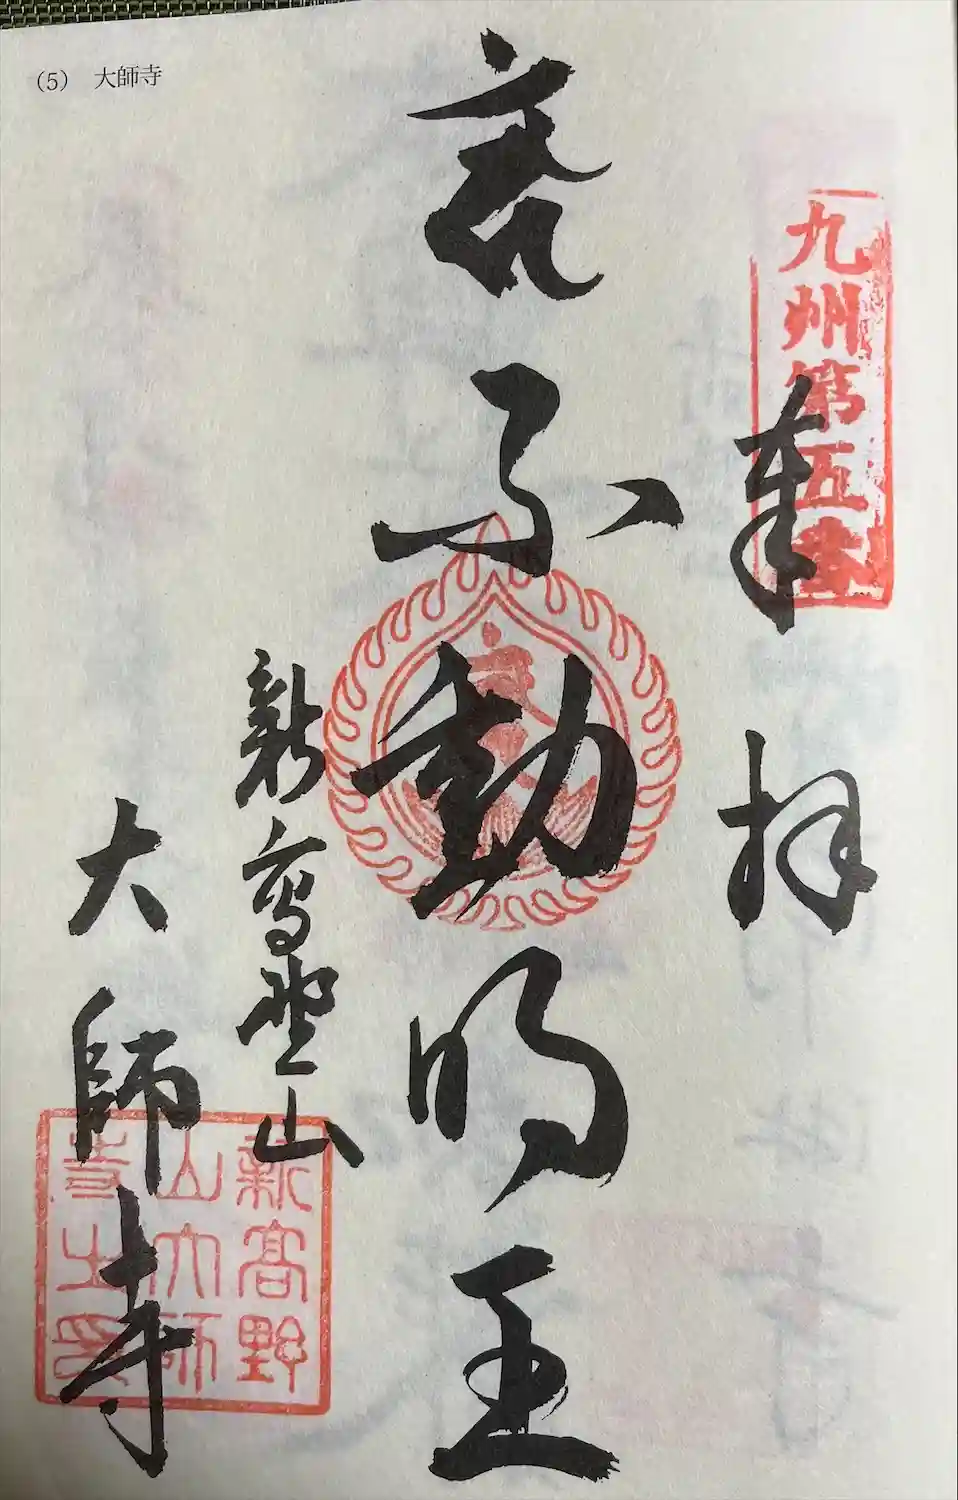 (5) 大師寺
九州第五
奉拝
不動明王
新高埜山
大師寺
新高野
山大師
寺之印